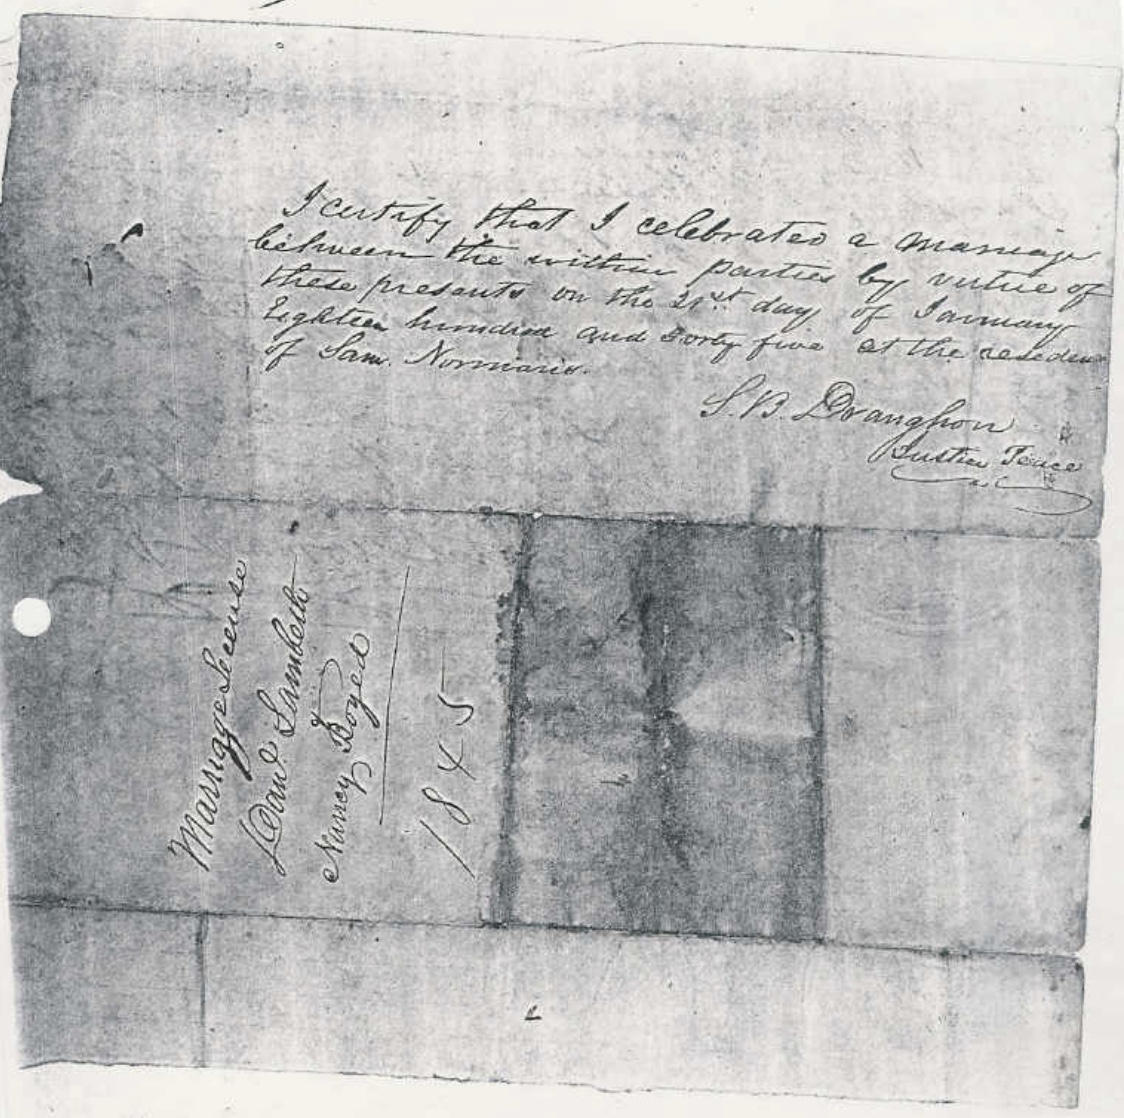 I certify that I celebrated a marriage
between the within parties by virtue of
these presents on the 21st day of January
Eighteen hundred and Forty five at the residen
of Sam. Normans.
S. B. Draughon
Justice Peace
Marriage License
Dan^l Lambeth
&
Nancy Boyed
1845